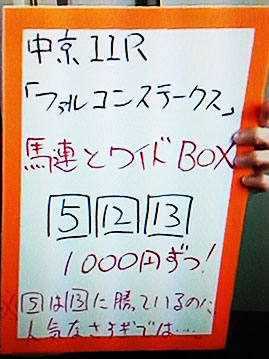 中京11R
「ファルコンステークス」
馬連とワイドBOX
5 12 13
1000円ずつ!
※5は13に勝っているのに、
人気なさすぎでは…